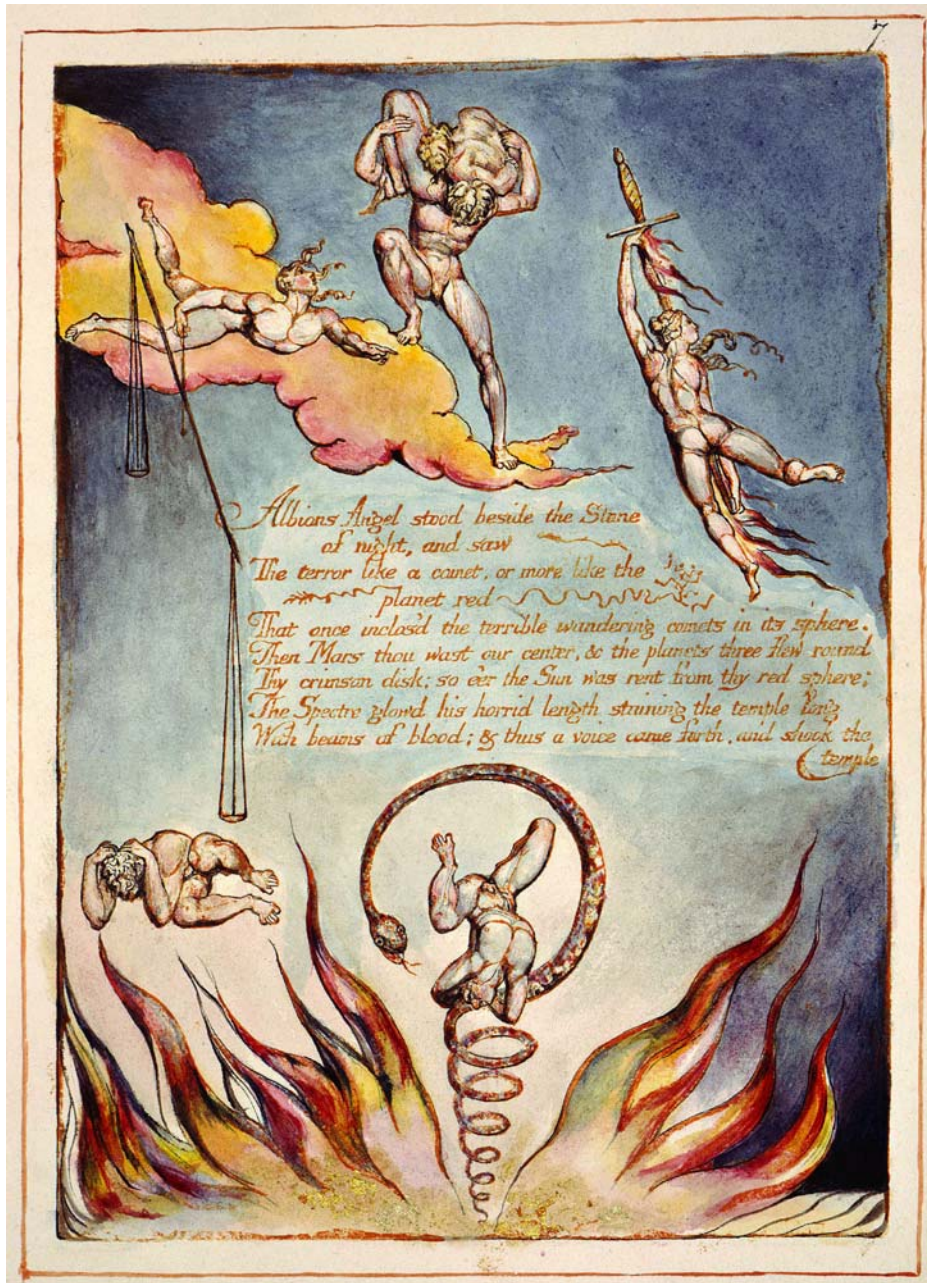 7
Albions Angel stood beside the Stone
of night, and saw
The terror like a comet, or more like the
planet red
That once inclos'd the terrible wandering comets in its sphere.
Then Mars thou wast our center, & the planets three flew round
Thy crimson disk; so e'er the Sun was rent from thy red sphere;
The Spectre glowd his horrid length staining the temple long
With beams of blood; & thus a voice came forth, and shook the
temple